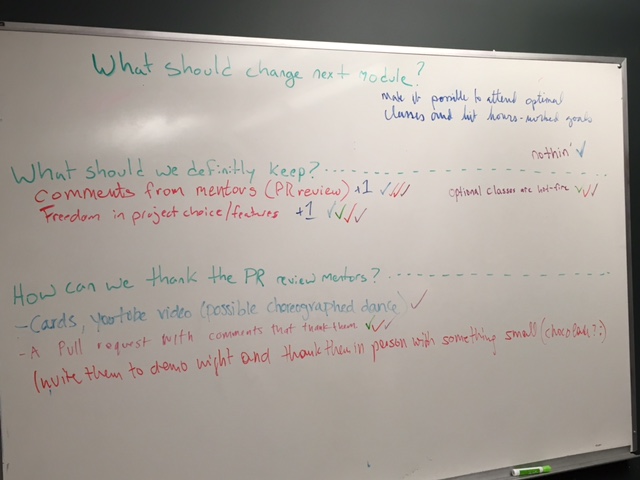 What should change next module?
Make it possible to attend optional
classes and hit hours-worked goals
nothin' ✓
What should we definitly keep?
Comments from mentors (PR review) +1 ✓✓✓
optional classes are hot-fire ✓✓✓
Freedom in project choice/features +1 ✓✓✓✓
How can we thank the PR review mentors?
-Cards, youtube video (possible choreographed dance) ✓
-A Pull request with comments that thank them ✓✓✓
Invite them to demo night and thank them in person with something small (chocolate?:)